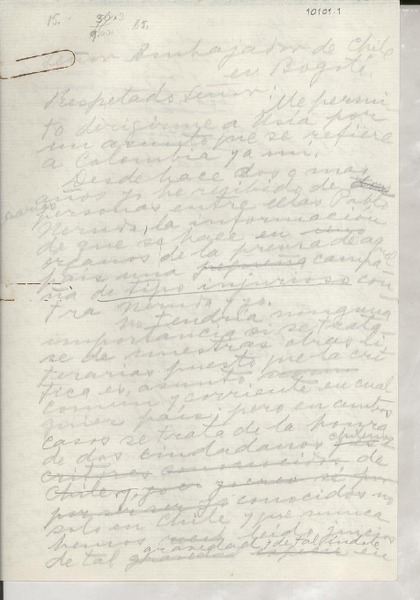 10101.1
15.
Señor Embajador de Chile
en Bogotá.
Respetado señor:
Me permi-
to dirigirme a Usía por
un asunto que se refiere
a Colombia y a mí.
Desde hace dos o mas
años yo he recibido de
varias
personas entre ellas Pablo
Neruda, la información
de que se hace en
organos de la prensa de aq.
país una pequeña campa-
ña de tipo injurioso con-
tra Neruda y yo.
No tendría ninguna
importancia si se trata-
se de nuestras obras li-
terarias puesto que la crí-
tica es asunto
comun y corriente en cual
quier país; pero en ambos
casos se trata de la honra
de dos ciudadanos chilenos
de
Chile
conocidos no
solo en Chile y que nunca
hemos leido juicios
gravedad y de tal índole
de tal en